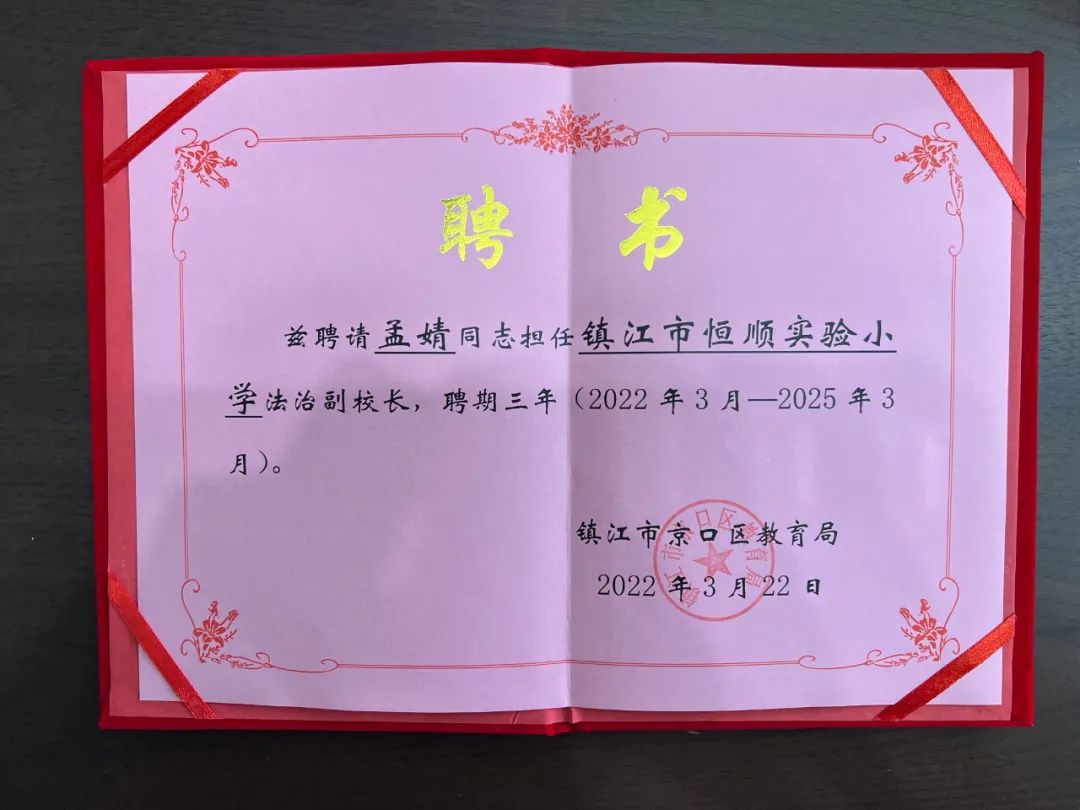 聘 书
兹聘请孟婧同志担任镇江市恒顺实验小
学法治副校长，聘期三年（2022 年 3 月—2025 年 3
月）。
镇江市京口区教育局
2022 年 3 月 22 日
镇江市京口区教育局